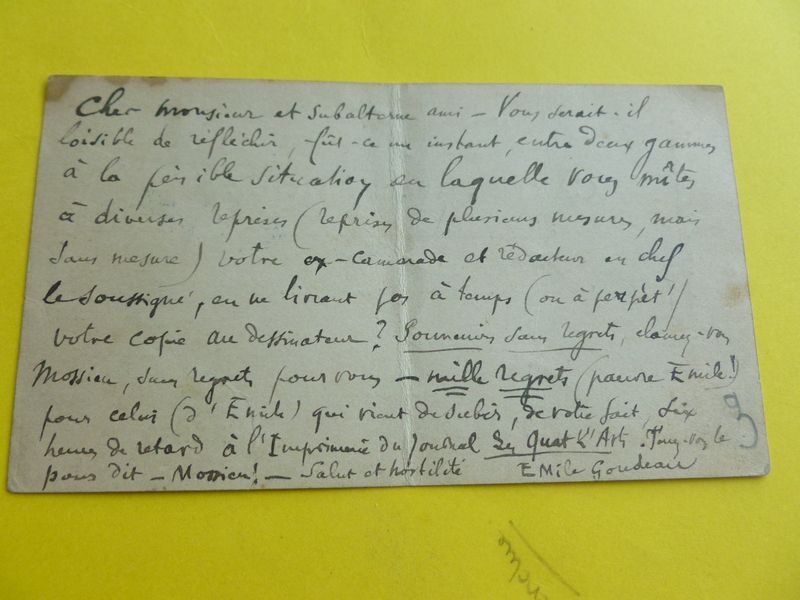 Cher monsieur et subalterne ami – Vous serait-il
loisible de réfléchir, fût-ce un instant, entre deux gammes
à la pénible situation en laquelle vous mîtes
à diverses reprises (reprises de plusieurs mesures, mais
sans mesure) votre ex-camarade et rédacteur en chef
le soussigné, en ne livrant pas à temps (ou à perpèt'!)
votre copie au dessinateur? Souvenirs sans regrets, clamez-vous
Mossieu, sans regrets pour vous – mille regrets (pauvre Emile!)
pour celui (d'Emile) qui vient de subir, de votre fait, six
heures de retard à l'Imprimerie du Journal Les Quat'z'Arts. Tenez-vous le
pour dit – Mossieu! – Salut et hostilité Emile Goudeau